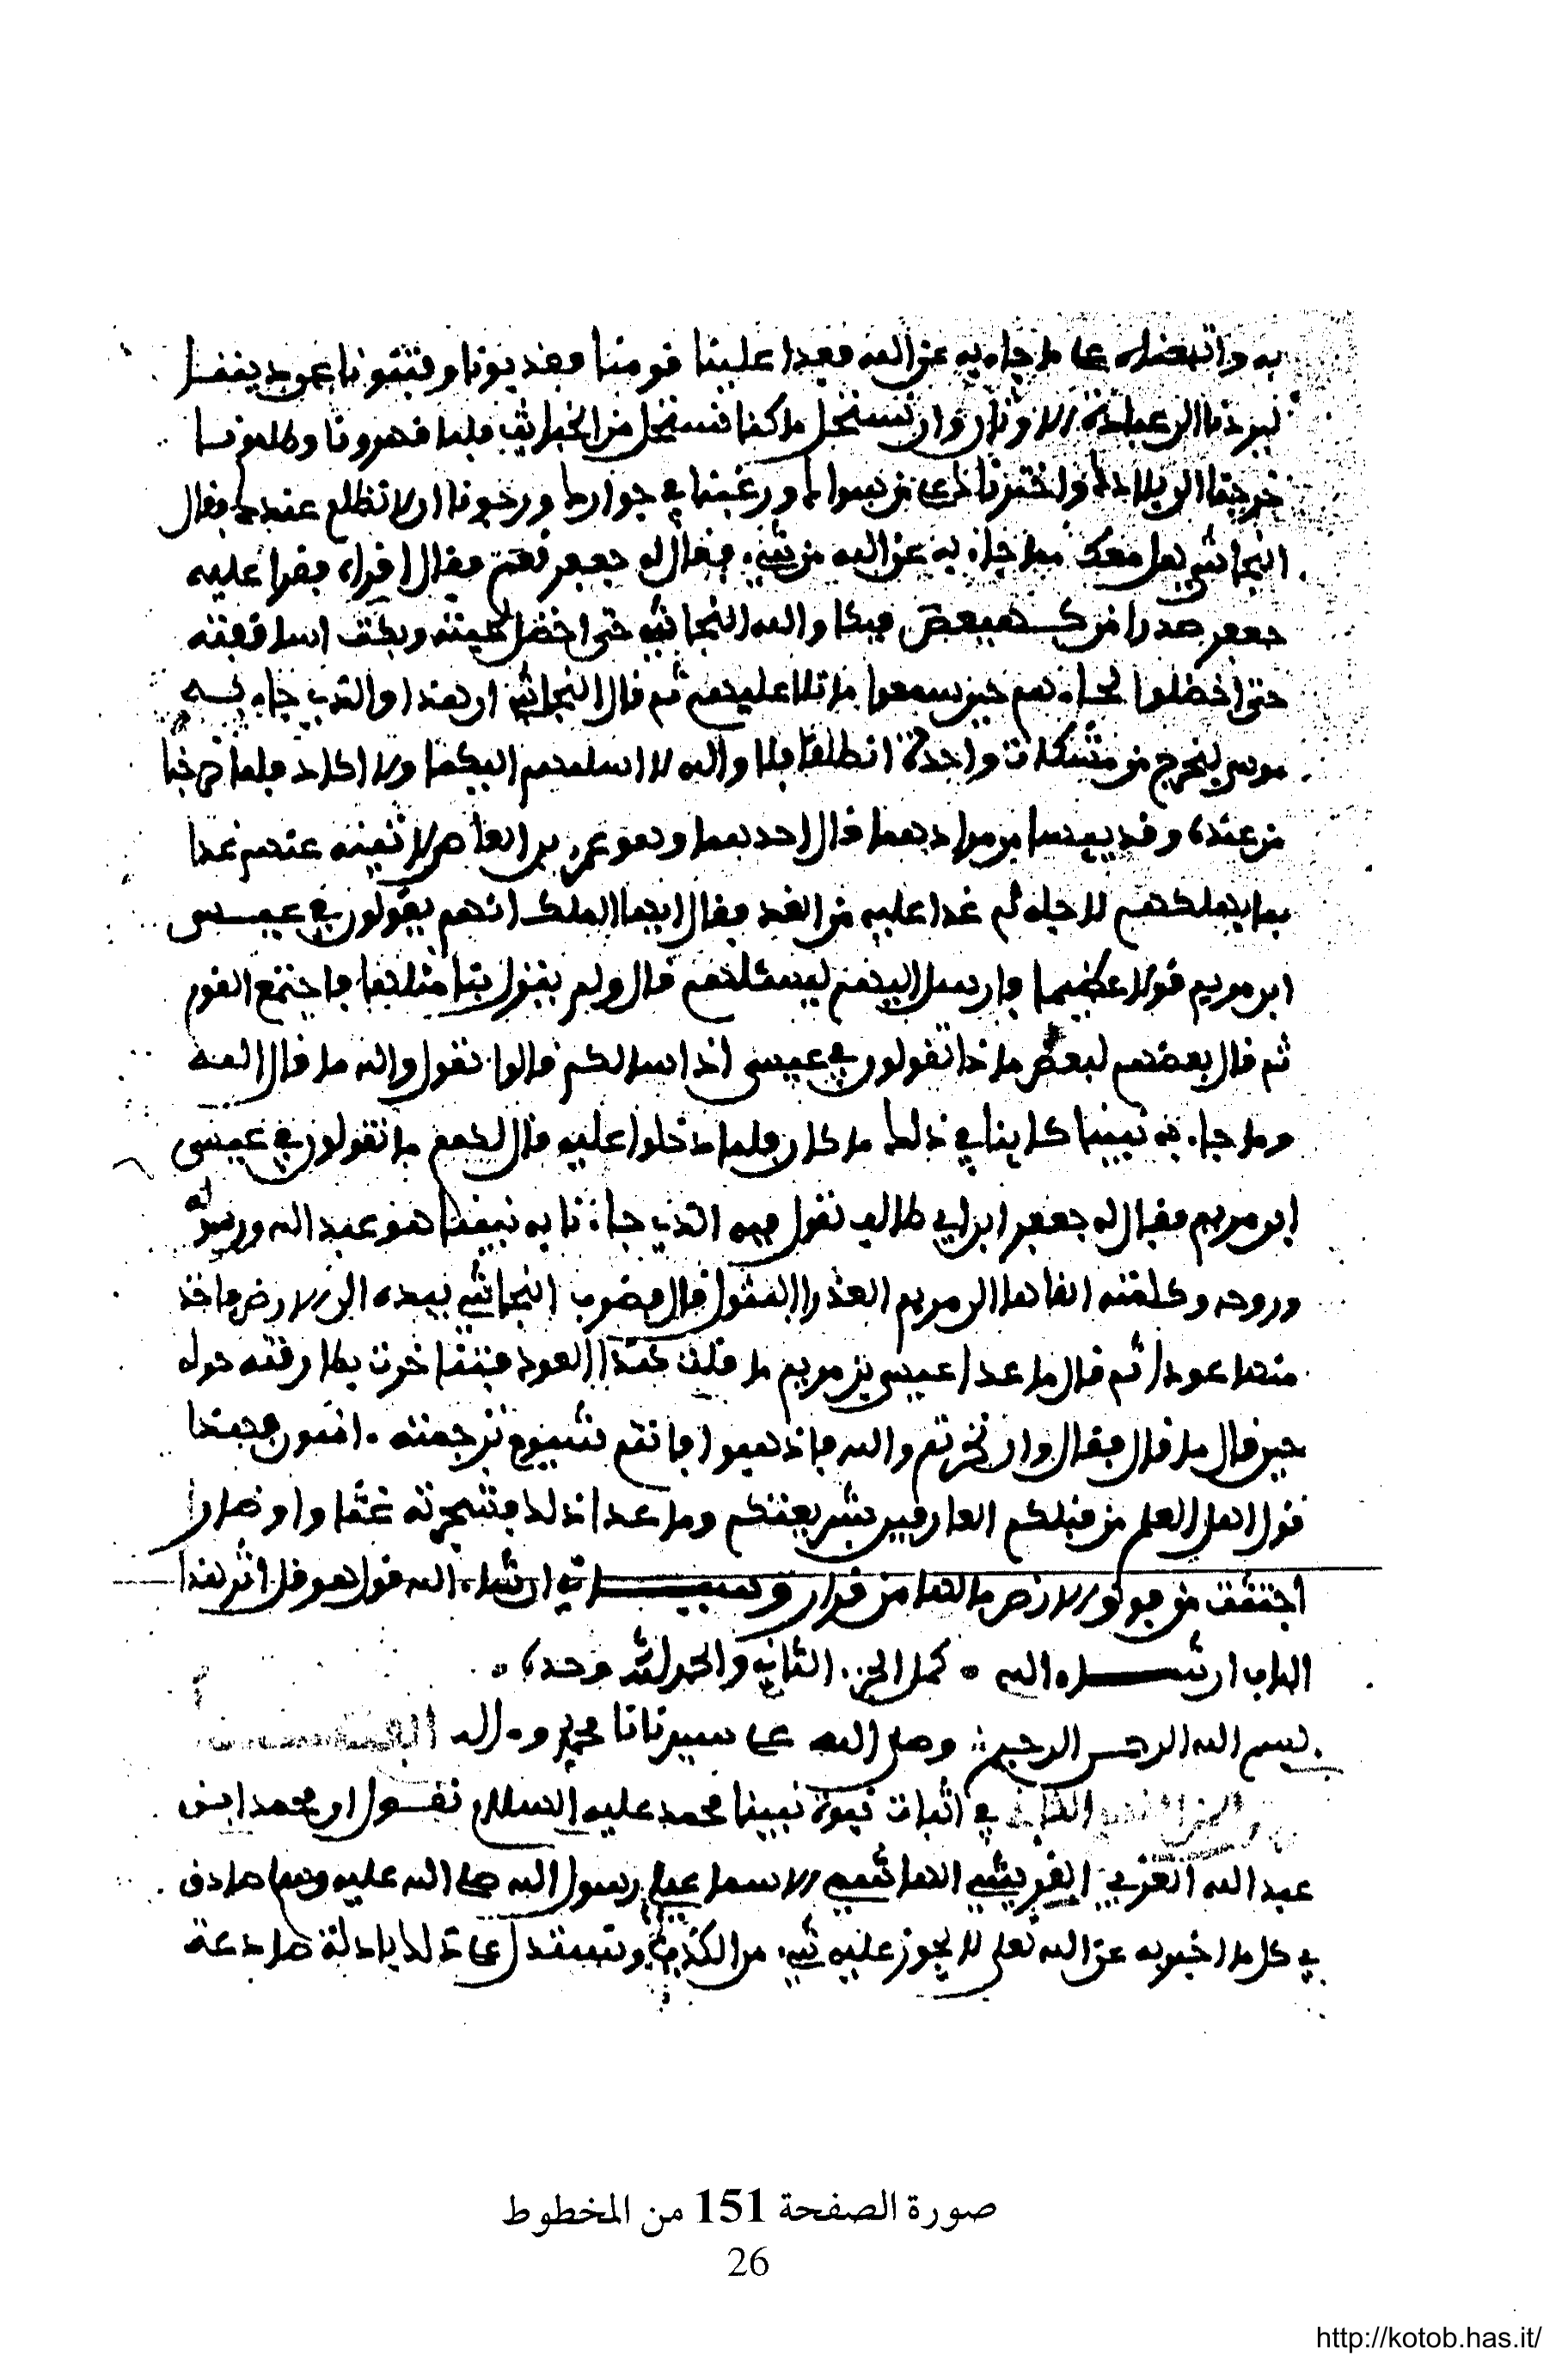 به واتبعناه على ما جاء به عن الله فعدا علينا قومنا فعذبونا وفتنونا عن ديننا
ليردنا الى عبادة الاوثان وان نستحل ما كنا نستحل من الخبائث فلما قهرونا وظلمونا
خرجنا الى بلادك واخترناك على من سواك ورغبنا في جوارك ورجونا ان لا نظلم عندك فقال
النجاشي هل معك مما جاء به عن الله من شيء فقال له جعفر نعم فقال اقراه فقرا عليه
جعفر صدرا من كهيعص فبكا والله النجاشي حتى اخضل لحيته وبكت اساقفته
حتى اخضلوا لحاءهم حين سمعوا ما تلا عليهم ثم قال النجاشي ان هذا والذي جاء به
موسى ليخرج من مشكات واحدة انطلقا فلا والله لا اسلمهم اليكما ولا اكاد فلما خرجا
من عنده وقد ييسا من مرادهما قال احدهما وهو عمر بن العاص لاتينه عنهم غدا
بما يهلكهم لاجله ثم غدا عليه من الغد فقال ايها الملك انهم يقولون في عيسى
ابن مريم قولا عظيما فارسل اليهم ليسئلهم قال ولم ينزل بنا مثلها فاجتمع القوم
ثم قال بعضهم لبعض ماذا تقولون في عيسى اذا سالكم قالوا نقول والله ما قال الله
وما جاء به نبينا كاينا في ذلك ما كان فلما دخلوا عليه قال لهم ما تقولون في عيسى
ابن مريم فقال له جعفر ابن ابي طالب نقول فيه الذي جاءنا به نبينا هو عبد الله ورسوله
وروحه وكلمته القاها الى مريم العذرا البتول قال فضرب النجاشي بيده الى الارض فاخذ
منها عودا ثم قال ما عدا عيسى بن مريم ما قلت هذا العود فتناخرت بطارقته حوله
حين قال ما قال فقال وان نخرتم والله فاذهبوا فانتم شيوم ترجمته امنون فهذا
قول اهل العلم من قبلكم العارفين بشريعتكم وما عدا ذلك فشجرته غثا واوضارا
اجتثت من فوق الارض مالها من قرار وسياتي ان شاء الله قول هرقل اثر هذا
الباب ان شاء الله كمل الجزء الثاني والحمد لله وحده
بسم الله الرحمن الرحيم وصلى الله على سيدنا محمد وءاله
الثاني في اثبات نبوة نبينا محمد عليه السلام نقول ان محمدا بن
عبد الله العربي القريشي الهاشمي الاسماعيلي رسول الله صلى الله عليه وسلم صادق
في كل ما اخبر به عن الله تعلى لا يجوز عليه شيء من الكذب ونستدل على ذلك بادلة صادعة
صورة الصفحة 151 من المخطوط
26
http://kotob.has.it/